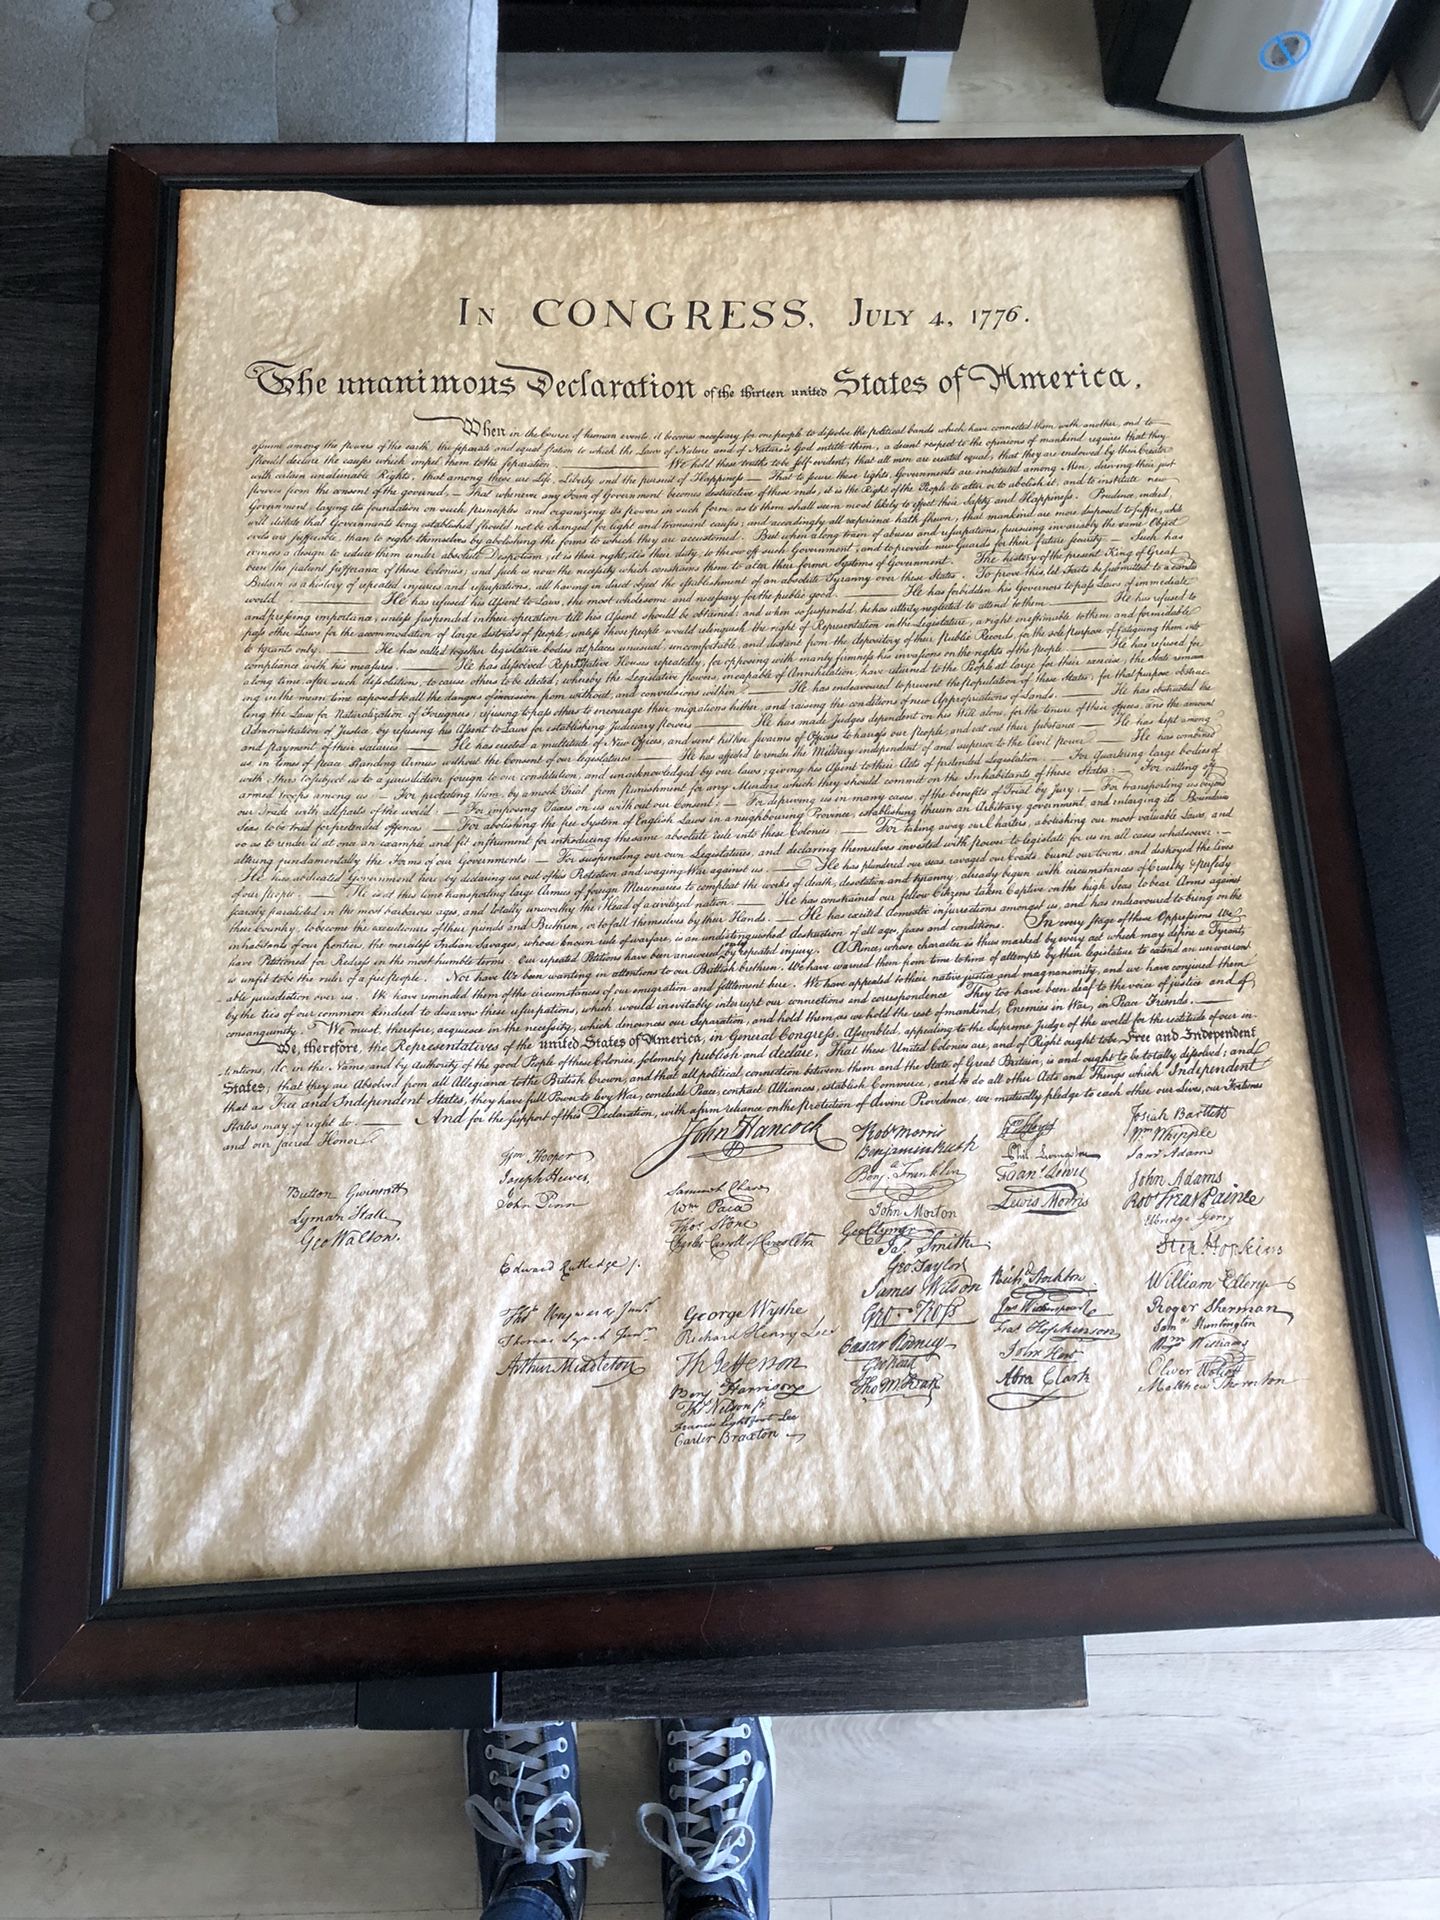 In CONGRESS, July 4, 1776.
The unanimous Declaration of the thirteen united States of America.
When in the Course of human events, it becomes necessary for one people to dissolve the political bands which have connected them with another, and to
assume among the powers of the earth, the separate and equal station to which the Laws of Nature and of Nature's God entitle them, a decent respect to the opinions of mankind requires that they
should declare the causes which impel them to the separation. — We hold these truths to be self-evident, that all men are created equal, that they are endowed by their Creator
with certain unalienable Rights, that among these are Life, Liberty and the pursuit of Happiness — That to secure these rights, Governments are instituted among Men, deriving their just
powers from the consent of the governed, — That whenever any Form of Government becomes destructive of these ends, it is the Right of the People to alter or to abolish it, and to institute new
Government, laying its foundation on such principles and organizing its powers in such form, as to them shall seem most likely to effect their Safety and Happiness. Prudence, indeed,
will dictate that Governments long established should not be changed for light and transient causes; and accordingly all experience hath shewn, that mankind are more disposed to suffer, while
evils are sufferable, than to right themselves by abolishing the forms to which they are accustomed. But when a long train of abuses and usurpations, pursuing invariably the same Object
evinces a design to reduce them under absolute Despotism, it is their right, it is their duty, to throw off such Government, and to provide new Guards for their future security. — Such has
been the patient sufferance of these Colonies; and such is now the necessity which constrains them to alter their former Systems of Government. The history of the present King of Great
Britain is a history of repeated injuries and usurpations, all having in direct object the establishment of an absolute Tyranny over these States. To prove this, let Facts be submitted to a candid
world. — He has refused his Assent to Laws, the most wholesome and necessary for the public good. — He has forbidden his Governors to pass Laws of immediate
and pressing importance, unless suspended in their operation till his Assent should be obtained; and when so suspended, he has utterly neglected to attend to them. — He has refused to
pass other Laws for the accommodation of large districts of people, unless those people would relinquish the right of Representation in the Legislature, a right inestimable to them and formidable
to tyrants only. — He has called together legislative bodies at places unusual, uncomfortable, and distant from the depository of their Public Records, for the sole purpose of fatiguing them into
compliance with his measures. — He has dissolved Representative Houses repeatedly, for opposing with manly firmness his invasions on the rights of the people. — He has refused for
a long time, after such dissolutions, to cause others to be elected; whereby the Legislative powers, incapable of Annihilation, have returned to the People at large for their exercise; the State remain
ing in the mean time exposed to all the dangers of invasion from without, and convulsions within. — He has endeavoured to prevent the population of these States; for that purpose obstruc-
ting the Laws for Naturalization of Foreigners; refusing to pass others to encourage their migrations hither, and raising the conditions of new Appropriations of Lands. — He has obstructed the
Administration of Justice, by refusing his Assent to Laws for establishing Judiciary powers — He has made Judges dependent on his Will alone, for the tenure of their offices, and the amount
and payment of their salaries — He has erected a multitude of New Offices, and sent hither swarms of Officers to harrass our people, and eat out their substance. — He has kept among
us, in times of peace, Standing Armies without the Consent of our legislatures — He has affected to render the Military independent of and superior to the Civil power — He has combined
with others to subject us to a jurisdiction foreign to our constitution, and unacknowledged by our laws; giving his Assent to their Acts of pretended Legislation: — For Quartering large bodies of
armed troops among us: — For protecting them, by a mock Trial, from punishment for any Murders which they should commit on the Inhabitants of these States: — For cutting off
our Trade with all parts of the world: — For imposing Taxes on us without our Consent: — For depriving us in many cases, of the benefits of Trial by Jury: — For transporting us beyond
Seas to be tried for pretended offences — For abolishing the free System of English Laws in a neighbouring Province, establishing therein an Arbitrary government, and enlarging its Boundaries
so as to render it at once an example and fit instrument for introducing the same absolute rule into these Colonies: — For taking away our Charters, abolishing our most valuable Laws, and
altering fundamentally the Forms of our Governments: — For suspending our own Legislatures, and declaring themselves invested with power to legislate for us in all cases whatsoever. —
He has abdicated Government here, by declaring us out of his Protection and waging War against us. — He has plundered our seas, ravaged our Coasts, burnt our towns, and destroyed the lives
of our people. — He is at this time transporting large Armies of foreign Mercenaries to compleat the works of death, desolation and tyranny, already begun with circumstances of Cruelty & perfidy
scarcely paralleled in the most barbarous ages, and totally unworthy the Head of a civilized nation. — He has constrained our fellow Citizens taken Captive on the high Seas to bear Arms against
their Country, to become the executioners of their friends and Brethren, or to fall themselves by their Hands. — He has excited domestic insurrections amongst us, and has endeavoured to bring on the
inhabitants of our frontiers, the merciless Indian Savages, whose known rule of warfare, is an undistinguished destruction of all ages, sexes and conditions. In every stage of these Oppressions We
have Petitioned for Redress in the most humble terms: Our repeated Petitions have been answered only by repeated injury. A Prince, whose character is thus marked by every act which may define a Tyrant,
is unfit to be the ruler of a free people. Nor have We been wanting in attentions to our Brittish brethren. We have warned them from time to time of attempts by their legislature to extend an unwarrant
able jurisdiction over us. We have reminded them of the circumstances of our emigration and settlement here. We have appealed to their native justice and magnanimity, and we have conjured them
by the ties of our common kindred to disavow these usurpations, which, would inevitably interrupt our connections and correspondence They too have been deaf to the voice of justice and of
consanguinity. We must, therefore, acquiesce in the necessity, which denounces our Separation, and hold them, as we hold the rest of mankind, Enemies in War, in Peace Friends. —
We, therefore, the Representatives of the united States of America, in General Congress, Assembled, appealing to the Supreme Judge of the world for the rectitude of our in-
tentions, do, in the Name, and by Authority of the good People of these Colonies, solemnly publish and declare, That these United Colonies are, and of Right ought to be Free and Independent
States; that they are Absolved from all Allegiance to the British Crown, and that all political connection between them and the State of Great Britain, is and ought to be totally dissolved; and
that as Free and Independent States, they have full Power to levy War, conclude Peace, contract Alliances, establish Commerce, and to do all other Acts and Things which Independent
States may of right do. — And for the support of this Declaration, with a firm reliance on the Protection of divine Providence, we mutually pledge to each other our Lives, our Fortunes
and our sacred Honor.
Button Gwinnett
Lyman Hall
Geo Walton.
Wm Hooper
Joseph Hewes,
John Penn
Edward Rutledge /.
Thos Heyward Junr.
Thomas Lynch Junr.
Arthur Middleton
John Hancock
Samuel Chase
Wm Paca
Thos Stone
Charles Carroll of Carrollton
George Wythe
Richard Henry Lee
Th Jefferson
Benj Harrison
Thos Nelson jr
Francis Lightfoot Lee
Carter Braxton
Robt Morris
Benjamin Rush
Benja Franklin
John Morton
Geo Clymer
Jas. Smith
Geo Taylor
James Wilson
Geo. Ross
Caesar Rodney
Geo Read
Tho M:Kean
Wm Floyd
Phil. Livingston
Frans. Lewis
Lewis Morris
Richd. Stockton
Jno Witherspoon
Fras. Hopkinson
John Hart
Abra Clark
Josiah Bartlett
Wm Whipple
Saml Adams
John Adams
Robt Treat Paine
Elbridge Gerry
Step. Hopkins
William Ellery
Roger Sherman
Saml Huntington
Wm Williams
Oliver Wolcott
Matthew Thornton